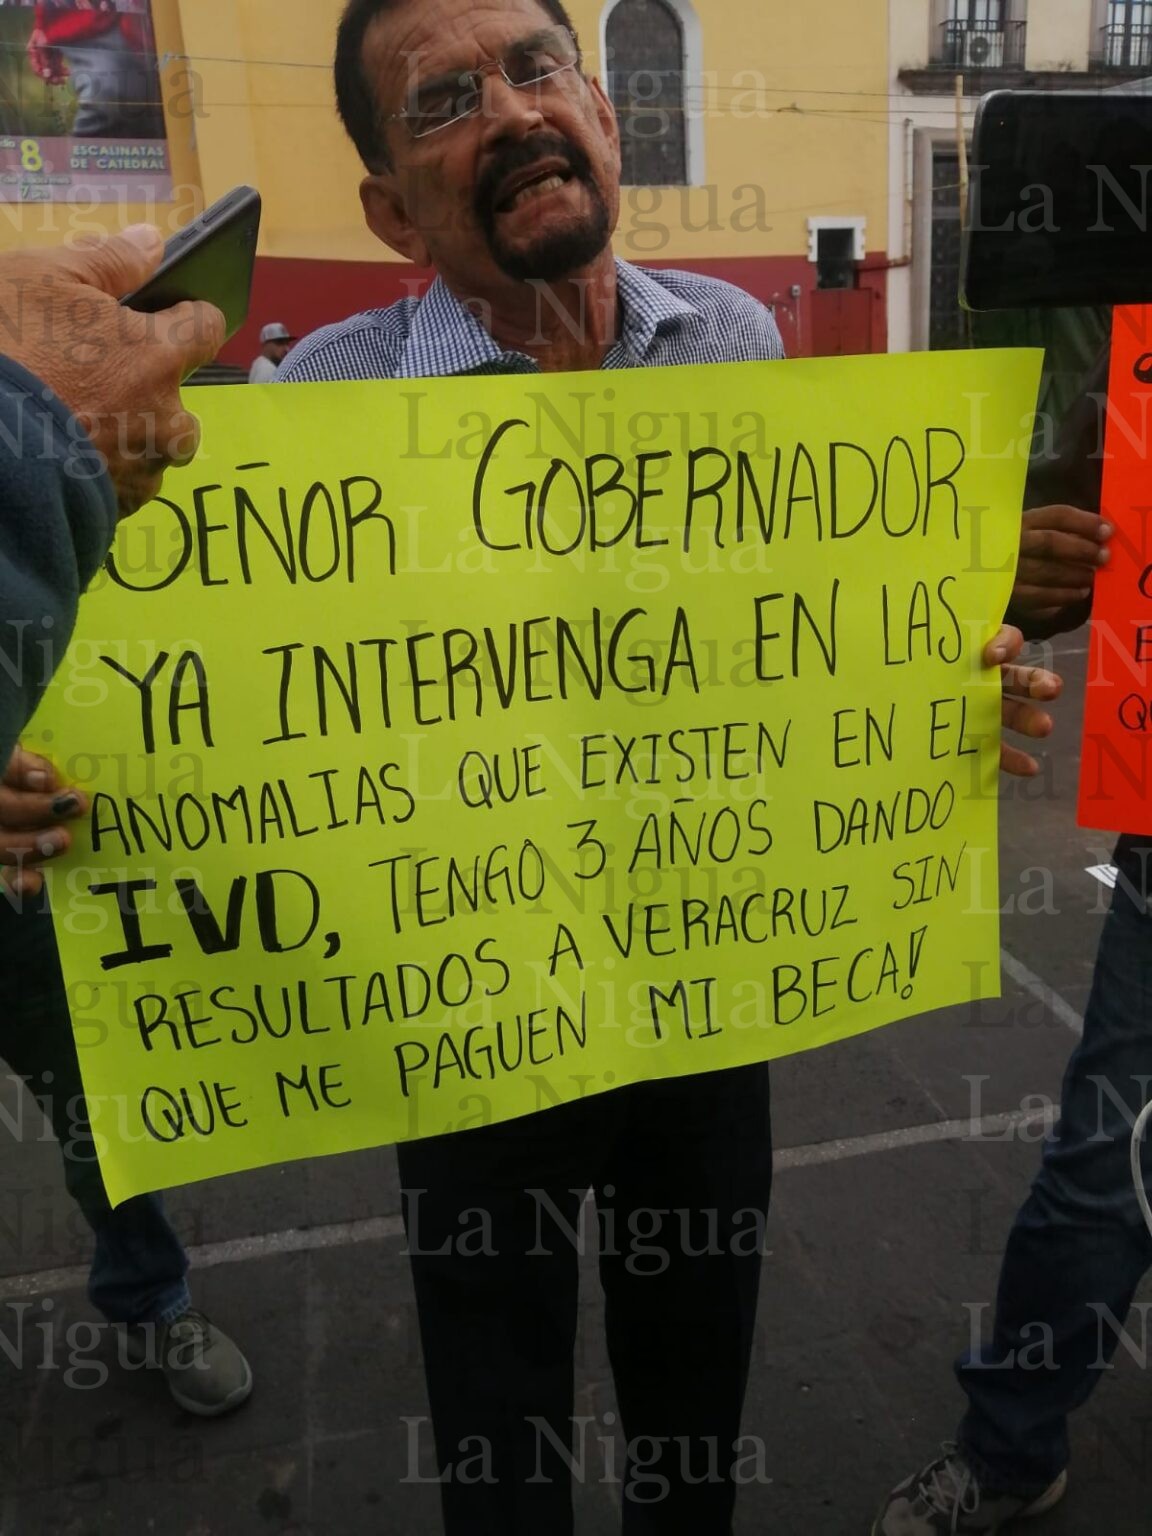 8
ESCALINATAS
DE CATEDRAL
SEÑOR GOBERNADOR
YA INTERVENGA EN LAS
ANOMALIAS QUE EXISTEN EN EL
IVD, TENGO 3 AÑOS DANDO
RESULTADOS A VERACRUZ SIN
QUE ME PAGUEN MI BECA!
La Nigua